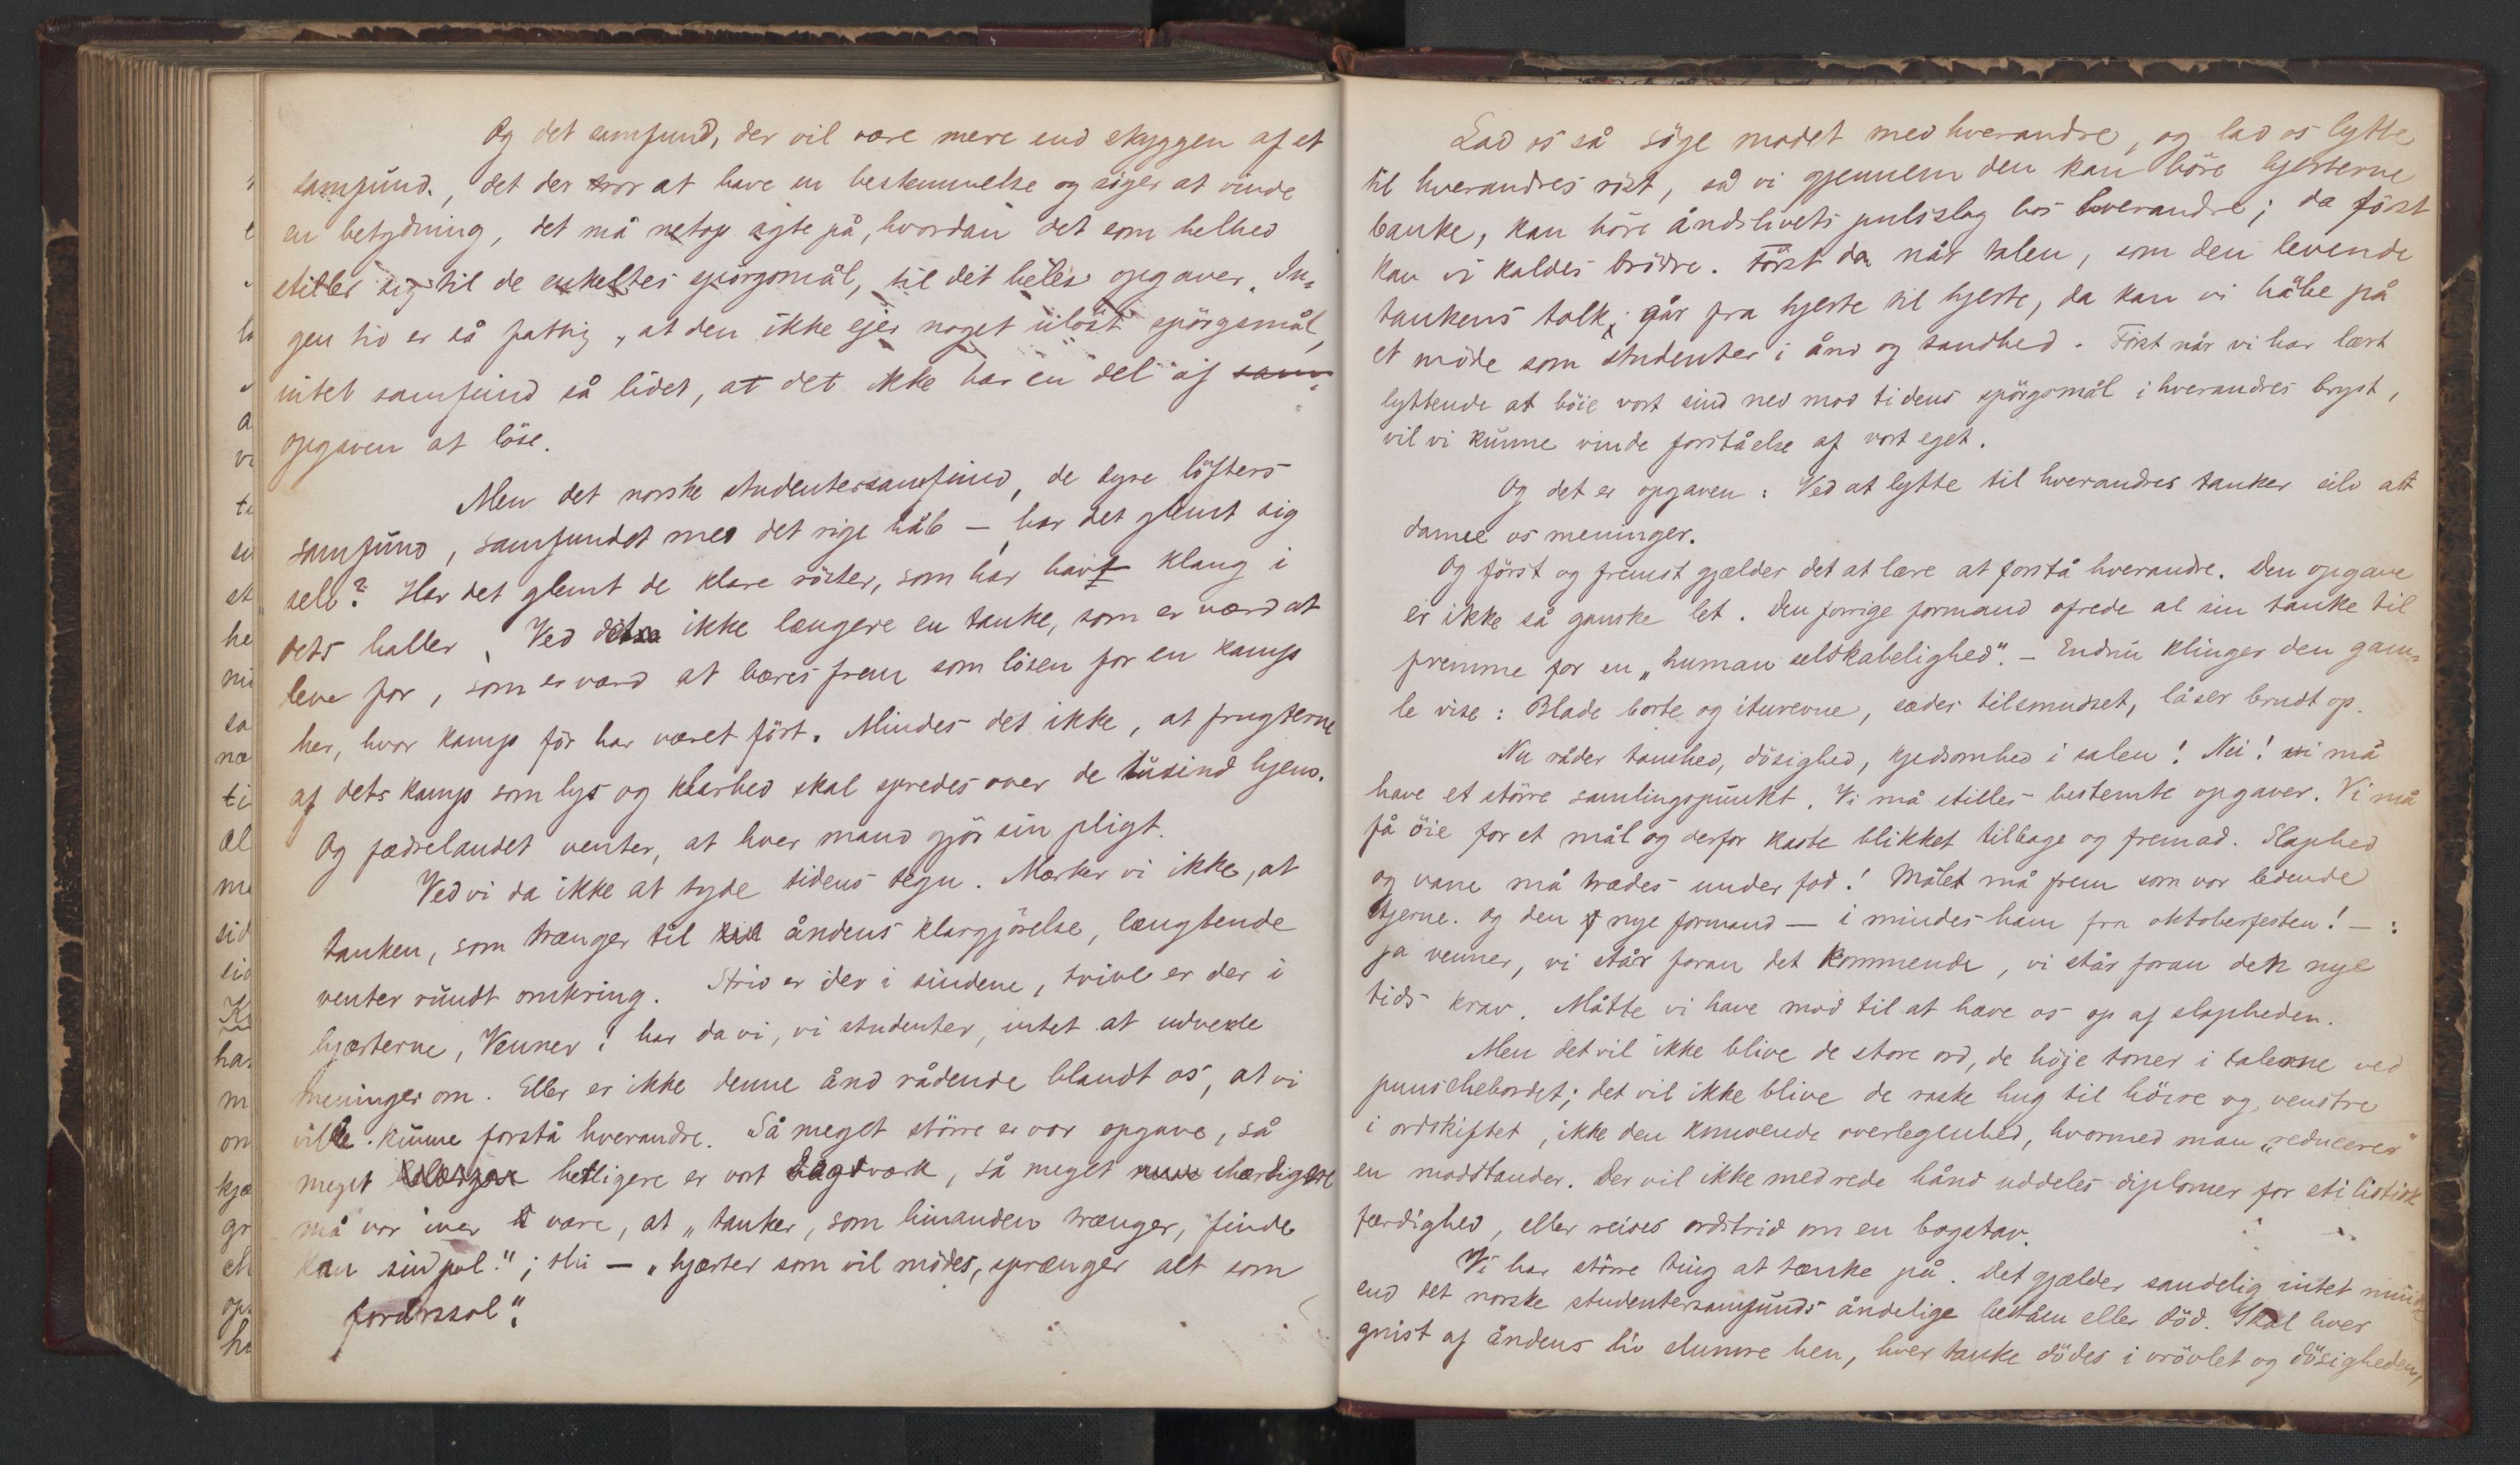 Og det samfund, der vil være mere end skyggen af et
samfund., det der tror at have en bestemmelse og söger at vinde
en betydning, det må netop agte på, hvordan det som helhed
stiller sig til de enkeltes spörgsmål, til det heles opgaver. In=
gen tid er så fattig, at den ikke ejer noget ulöst spörgsmål,
intet samfund så lidet, at det ikke har en del af sam=
opgaven at löse.
Men det norske studentersamfund, de dyre löfters
samfund, samfundet med det rige håb — har det glemt sig
selv? Har det glemt de klare röster, som har havt klang i
dets haller. Ved det ikke længere en tanke, som er værd at
leve for, som er værd at bæres frem som lösen for en kamp
her, hvor kamp för har været fört. Mindes det ikke, at frugterne
af dets kamp som lys og klarhed skal spredes over de tusind hjem.
Og fædrelandet venter, at hver mand gjör sin pligt.
Ved vi da ikke at tyde tidens tegn. Mærker vi ikke, at
tanken, som trænger til åndens klargjörelse, længtende
venter rundt omkring. Strid er der i sindene, tvivl er der i
hjærterne, Venner! har da vi, vi studenter, intet at udvexle
meninger om. Eller er ikke denne ånd rådende blandt os, at vi
ville kunne forstå hverandre. Så meget större er vor opgave, så
meget helligere er vort dagværk, så meget ihærdigere
må vor iver være, at „tanker, som hinanden trænger, finde
kan sin pol."; thi — „hjærter som vil mödes, sprænger alt som
forårssol".
Lad os så söge modet med hverandre, og lad os lytte
til hverandres röst, så vi gjennem den kan höre hjerterne
banke, kan höre åndslivets pulsslag hos hverandre; da först
kan vi kaldes brödre. Först da når talen, som den levende
tankens tolk, går fra hjerte til hjerte, da kan vi håbe på
et möde som studenter i ånd og sandhed. Först når vi har lært
lyttende at böie vort sind ned mod tidens spörgsmål i hverandres bryst,
vil vi kunne vinde forståelse af vort eget.
Og det er opgaven: Ved at lytte til hverandres tanker selv at
danne os meninger.
Og först og fremst gjælder det at lære at forstå hverandre. Den opgave
er ikke så ganske let. Den forrige formand ofrede al sin tanke til
fremme for en „human selskabelighed". — Endnu klinger den gam=
le vise: Blade borte og iturevne, sæder tilsmudset, låser brudt op.
Nu råder taushed, dösighed, kjedsomhed i salen! Nei! vi må
have et större samlingspunkt. Vi må stilles bestemte opgaver. Vi må
få öie for et mål og derfor kaste blikket tilbage og fremad. Slaphed
og vane må trædes under fod! Målet må frem som vor ledende
stjerne. Og den nye formand — i mindes ham fra oktoberfesten! — :
ja venner, vi står foran det kommende, vi står foran den nye
tids krav. Måtte vi have mod til at hæve os op af slapheden.
Men det vil ikke blive de store ord, de höje toner i talerne ved
punschebordet; det vil ikke blive de raske hug til höire og venstre
i ordskiftet, ikke den knusende overlegenhed, hvormed man „reducerer"
en modstander. Der vil ikke med rede hånd uddeles diplomer for stilistisk
færdighed, eller reises ordstrid om en bogstav.
Vi har större ting at tænke på. Det gjælder sandelig intet mindre
end det norske studentersamfunds åndelige beståen eller död. Skal hver
gnist af åndens liv slumre hen, hver tanke dödes i vrövlet og dösigheden,